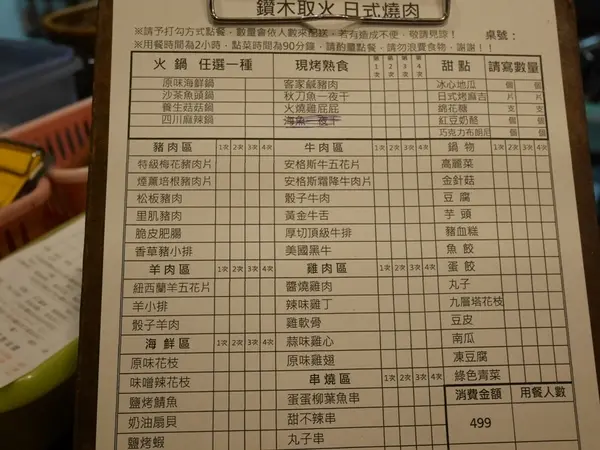 鑽木取火 日式燒肉
※請予打勾方式點餐，數量會依人數來配送，若有造成不便，敬請見諒！
桌號：
※用餐時間為2小時，點菜時間為90分鐘，請酌量點餐，請勿浪費食物，謝謝！！
火鍋 任選一種 現烤熟食 第1次 第2次 第3次 第4次 甜點 請寫數量
原味海鮮鍋 客家鹹豬肉 冰心地瓜 個 個
沙茶魚頭鍋 秋刀魚一夜干 日式烤麻吉 片 片
養生菇菇鍋 火燒雞屁屁 綿花糖 支 支
四川麻辣鍋 海魚一夜干 紅豆奶酪 個 個
巧克力布朗尼 個 個
豬肉區 1次 2次 3次 4次 牛肉區 1次 2次 3次 4次 鍋物 1次 2次 3次 4次
特級梅花豬肉片 安格斯牛五花片 高麗菜
煙薰培根豬肉片 安格斯霜降牛肉片 金針菇
松板豬肉 骰子牛肉 豆腐
里肌豬肉 黃金牛舌 芋頭
脆皮肥腸 厚切頂級牛排 豬血糕
香草豬小排 美國黑牛 魚餃
羊肉區 1次 2次 3次 4次 雞肉區 1次 2次 3次 4次 蛋餃
紐西蘭羊五花片 醬燒雞肉 丸子
羊小排 辣味雞丁 九層塔花枝
骰子羊肉 雞軟骨 豆皮
海鮮區 1次 2次 3次 4次 蒜味雞心 南瓜
原味花枝 原味雞翅 凍豆腐
味噌辣花枝 串燒區 1次 2次 3次 4次 綠色青菜
鹽烤鯖魚 蛋蛋柳葉魚串 消費金額 用餐人數
奶油扇貝 甜不辣串 499
鹽烤蝦 丸子串